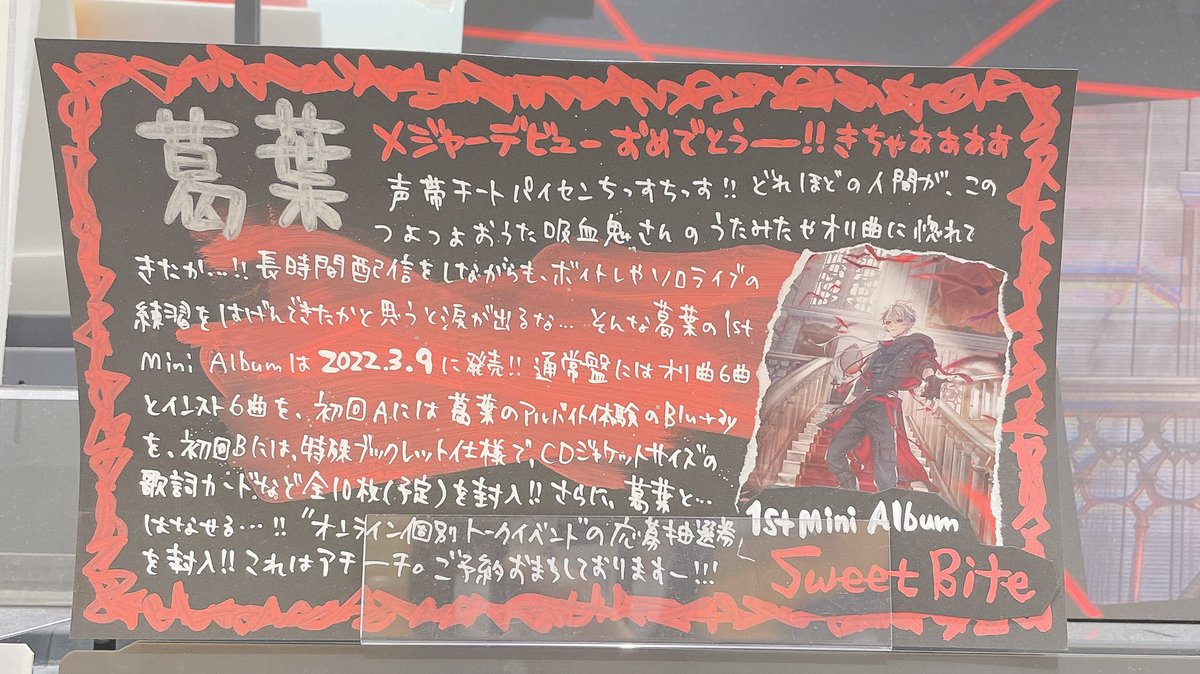 葛葉
メジャーデビューおめでとうー!!きちゃぁぁぁぁ
声帯チートパイセンちっすちっす!!どれほどの人間が、この
つよつよおうた吸血鬼さんのうたみたやオリ曲に惚れて
きたか…!!長時間配信をしながらも、ボイトレやソロライブの
練習をはげんできたかと思うと涙が出るな… そんな葛葉の1st
Mini Albumは2022.3.9に発売!!通常盤にはオリ曲6曲
とインスト6曲を、初回Aには葛葉のアルバイト体験のBlu-ray
を、初回Bには、特殊ブックレット仕様で、CDジャケットサイズの
歌詞カードなど全10枚(予定)を封入!!さらに、葛葉と…
はなせる…!!"オンライン個別トークイベント"の応募抽選券
を封入!!これはアチーチ。ご予約おまちしておりますー!!!
1st Mini Album
Sweet Bite